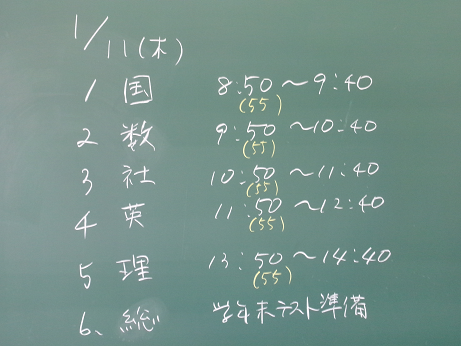 1/11(木)
1 国 8:50～9:40
(55)
2 数 9:50～10:40
(55)
3 社 10:50～11:40
(55)
4 英 11:50～12:40
(55)
5 理 13:50～14:40
(55)
6、総 学年末テスト準備